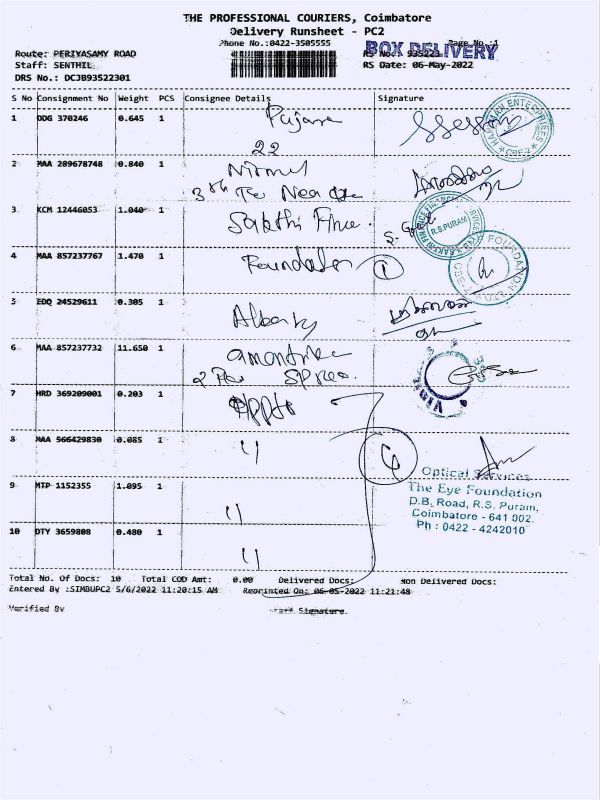 THE PROFESSIONAL COURIERS, Coimbatore
Delivery Runsheet - PC2
Phone No.:0422-3505555
Page No.:1
BOX DELIVERY
Route: PERIYASAMY ROAD
RS No.: 935223
Staff: SENTHIL
RS Date: 06-May-2022
DRS No.: DCJB93522301
S No Consignment No Weight PCS Consignee Details Signature
1 DDG 370246 0.645 1
22
HANUMAN ENTERPRISES
2 MAA 289678748 0.840 1 Nirmal
3 KCM 12446053 1.040 1 Sakthi Fince.
R.S.PURAM
4 MAA 857237767 1.470 1 Foundation 1
FOUNDATION
5 EDQ 24529611 0.305 1
6 MAA 857237732 11.650 1
7 HRD 369209001 0.203 1
8 MAA 566429830 0.085 1 "
4
Optical Services
The Eye Foundation
D.B. Road, R.S. Puram,
Coimbatore - 641 002.
Ph : 0422 - 4242010
9 MTP 1152355 1.095 1 "
10 DTY 3659808 0.480 1 "
Total No. Of Docs: 10 Total COD Amt: 0.00 Delivered Docs: Non Delivered Docs:
Entered By :SIMBUPC2 5/6/2022 11:20:15 AM Reprinted On: 06-05-2022 11:21:48
Verified By Staff Signature